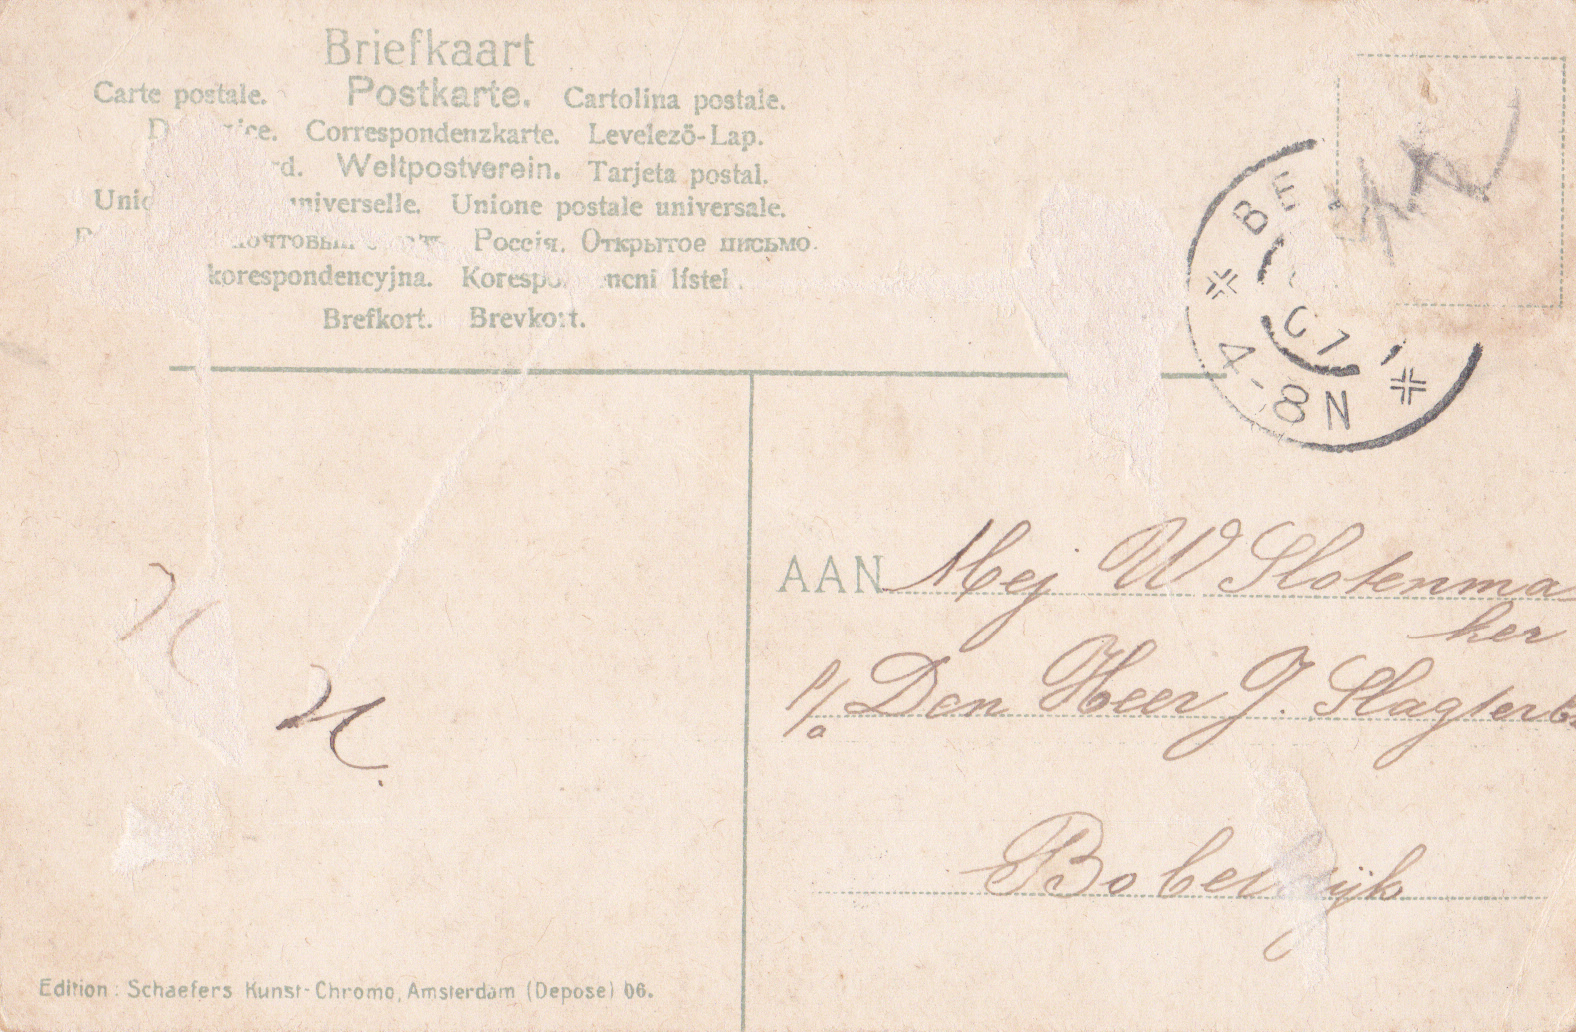 Briefkaart
Carte postale. Postkarte. Cartolina postale.
Correspondenzkarte. Levelező-Lap.
Weltpostverein. Tarjeta postal.
universelle. Unione postale universale.
Россія. Открытое письмо.
korespondencyjna. lístel.
Brefkort. Brevkort.
07
4-8N
AAN Mej W Slotenma
ker
P/a Den Heer J.
Edition: Schaefers Kunst-Chromo, Amsterdam (Depose) 06.